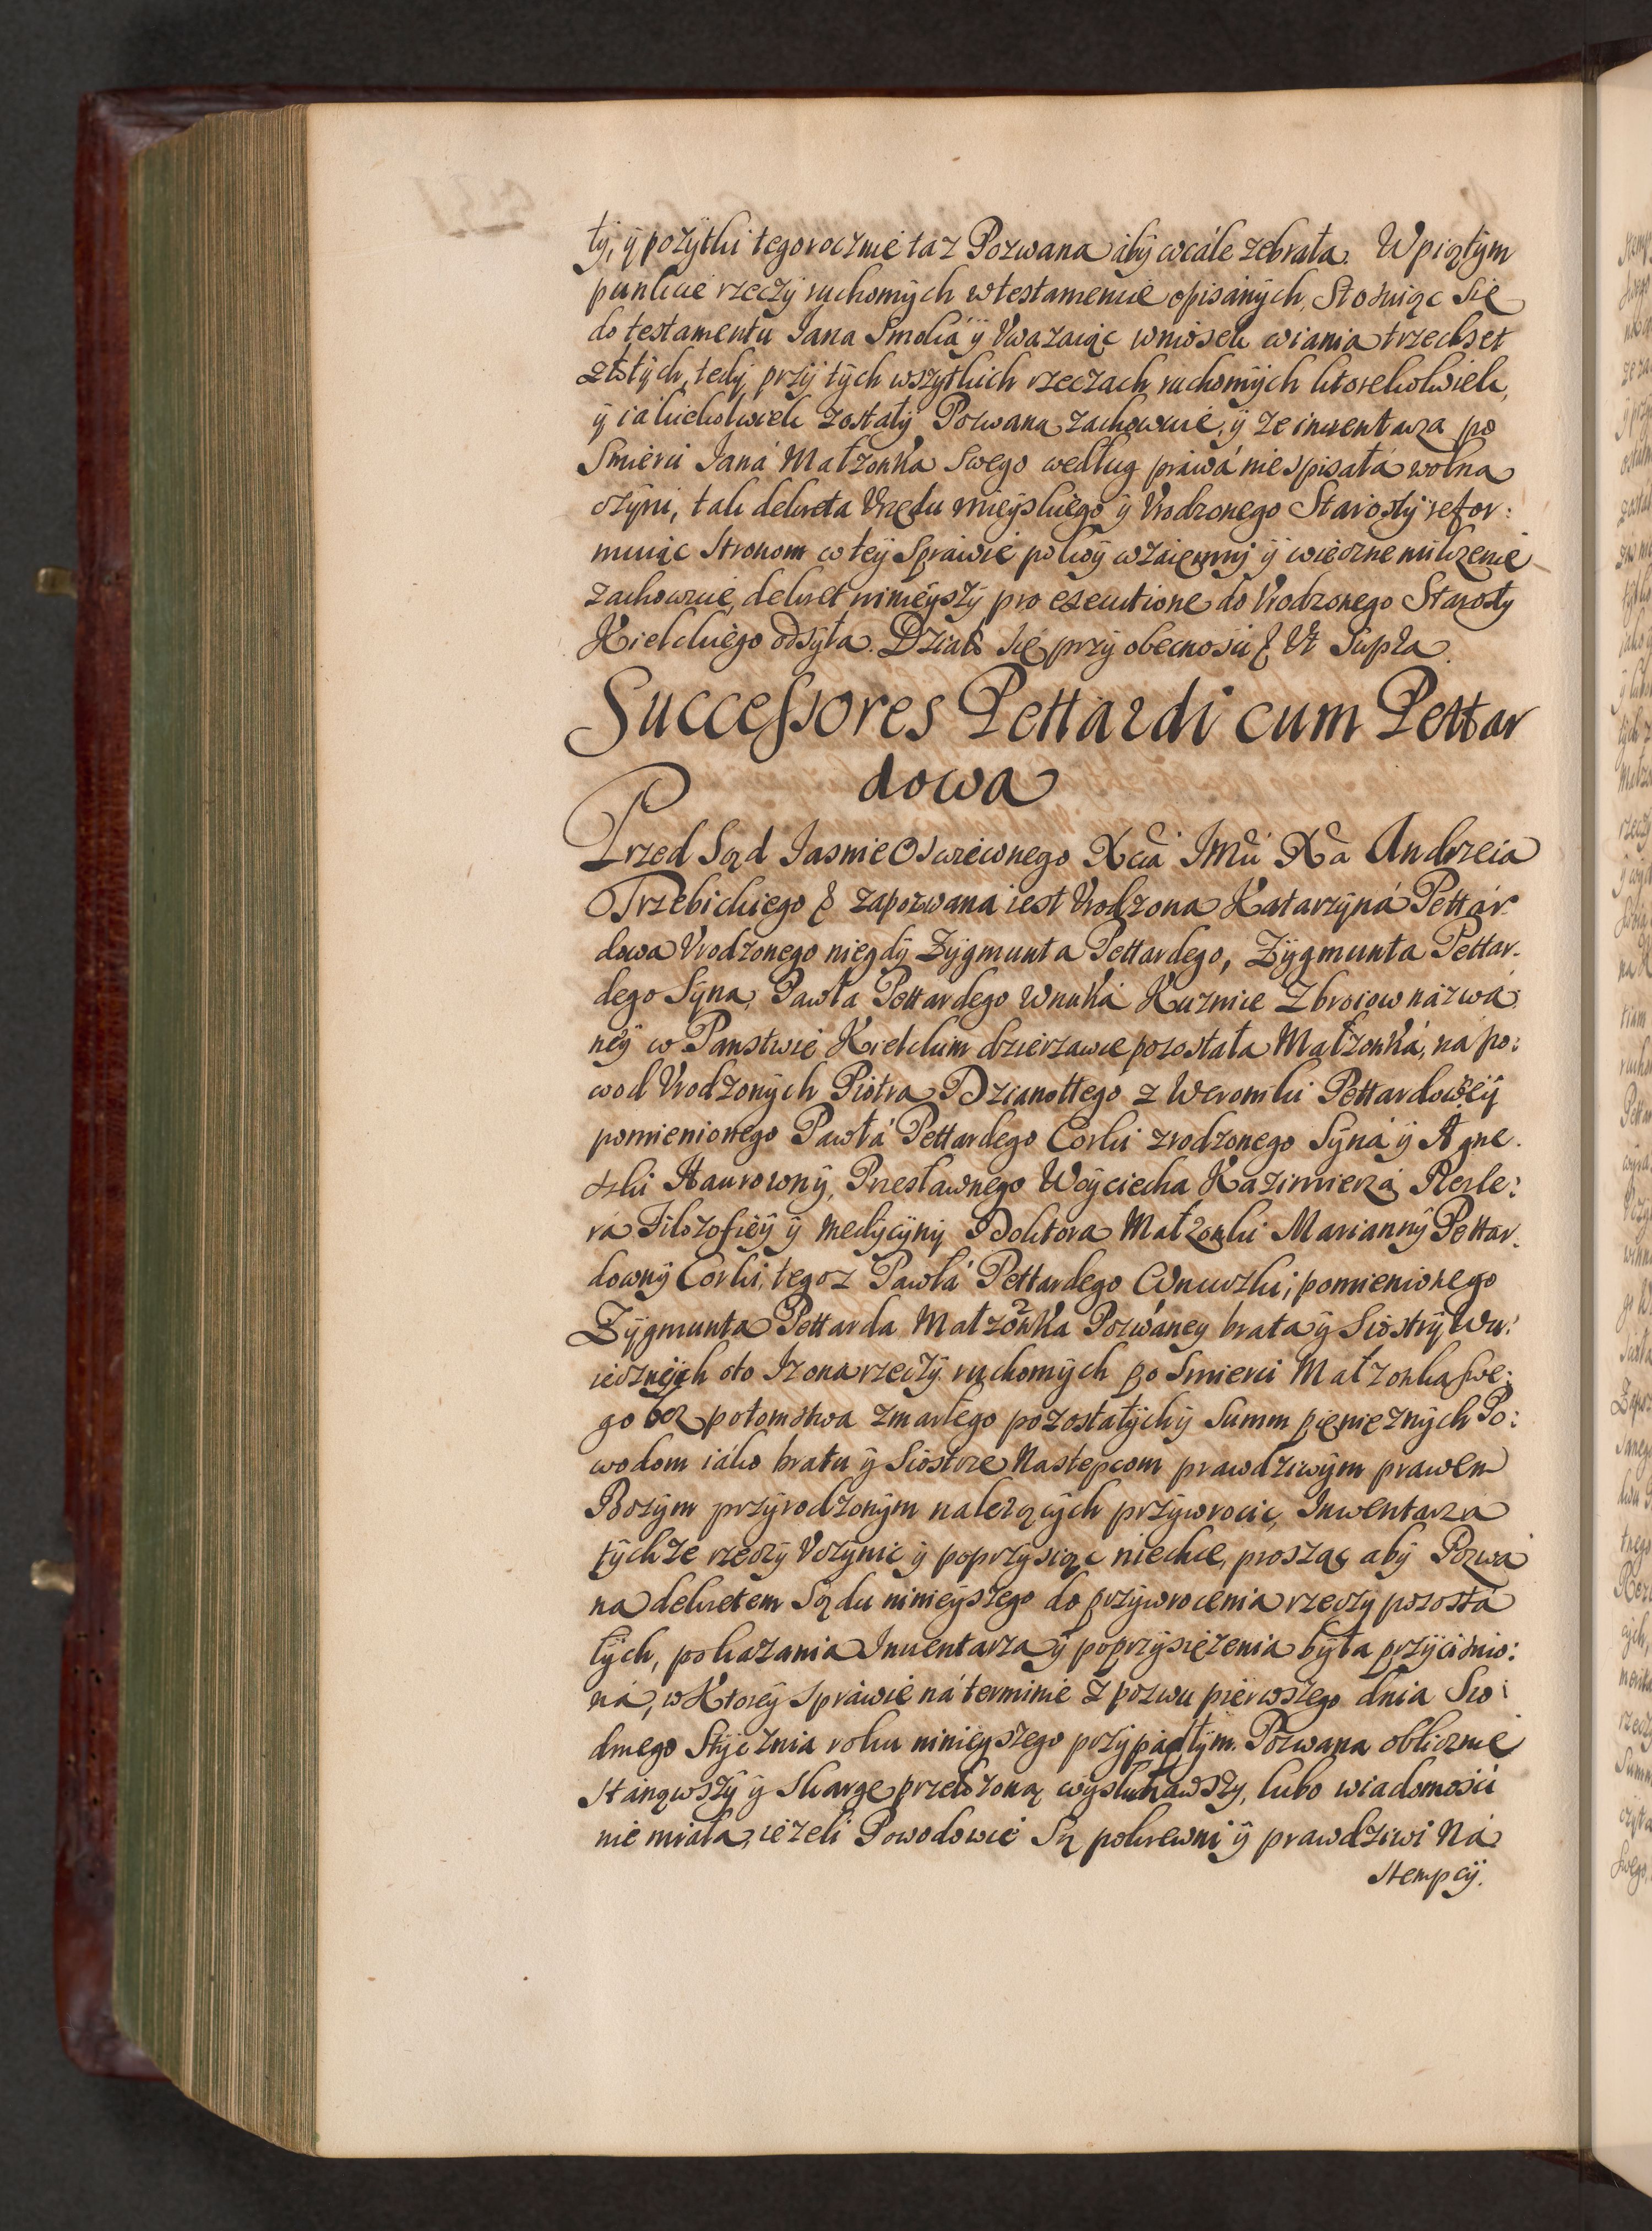 ty, ÿ pozÿtki tegorocznie taz Pozwana abÿ wcale zebrała. W piątÿm
punkcie rzeczÿ ruchomÿch w testamencie opisánÿch, Stosuiąc Się
do testamentu Jana Smoka ÿ Vwazaiąc wniosek wiania trzechset
złotÿch, tedÿ przÿ tÿch wszÿtkich rzeczach ruchomÿch ktorekolwiek,
ÿ iakiekolwiek zostałÿ Pozwaną zachowuie, ÿ ze inwentarza po
Smierci Janá Małzonka Swego według práwá nie spisałá wolną
czÿni, tak dekreta Vrzędu mieÿskiego ÿ Vrodzonego Starostÿ refor:
muiąc Stronom w teÿ Spráwie pokoÿ wzaięmnÿ ÿ wieczne milczenie
zachowuie, dekret ninieÿszÿ pro executione do Vrodzonego Starostÿ
Kielckiego odsÿła. Działo się przÿ obecnosci & Vt Supra.
Successores Pettardi cum Pettar
dowa
Przed Sąd Jasnie Oswieconego Xcia JMci Xa Andrzeia
Trzebickiego & zapozwana iest Vrodzona Katarzÿná Pettár
dowa Vrodzonego niegdÿ Zÿgmunta Pettardego, Zÿgmunta Pettar-
dego Sÿna, Pawła Pettardego wnuká Kuznice Zbroiow názwá:
neÿ w Panstwie Kielckim dzierzawce pozostała Małzonká, na po:
wod Vrodzonÿch Piotra Dzianottego z Weroniki Pettardoweÿ
pomienionego Pawłá Pettardego Corki zrodzonego Sÿná ÿ Agne.
szki Haurownÿ, Przesławnego Woÿciecha Kazimierzá Resle:
rá Filozofieÿ ÿ Medÿcÿnÿ Doktora Małzonki Mariannÿ Pettar.
downÿ Corki, tegoz Pawłá Pettardego Wnuczki, pomienionego
Zÿgmunta Pettarda Małzónka Pozwáneÿ brata ÿ Siostrÿ Wu:
iecznÿch oto Iz ona rzeczÿ ruchomÿch po Smierci Małzonka swe:
go bez potomstwa zmarłego pozostałÿch ÿ Summ pięnieznÿch Po:
wodom iáko bratu ÿ Siostrze Nastepcom prawdziwÿm prawem
Bozÿm przÿrodzonÿm nalezącÿch przÿwrocic, Inwentarza
tÿchze rzeczÿ Vczÿnic ÿ poprzÿsiąc niechce, prosząc abÿ Pozwa
na dekretem Sądu ninieÿszego do przÿwrocenia rzeczÿ pozosta
łÿch, pokazania Inuentarza ÿ poprzÿsięzenia bÿła przÿcisnio:
ná, w Ktoreÿ spráwie ná terminie z pozwu pierwszego dnia Sio:
dmego Stÿcznia roku ninieÿszego przÿpadłÿm. Pozwana oblicznie
Stanąwszÿ ÿ Skargę przełozoną wÿsłuchawszÿ, lubo wiadomosci
nie miała, iezeli Powodowie Są pokrewni ÿ prawdziwi Ná
stempcÿ.